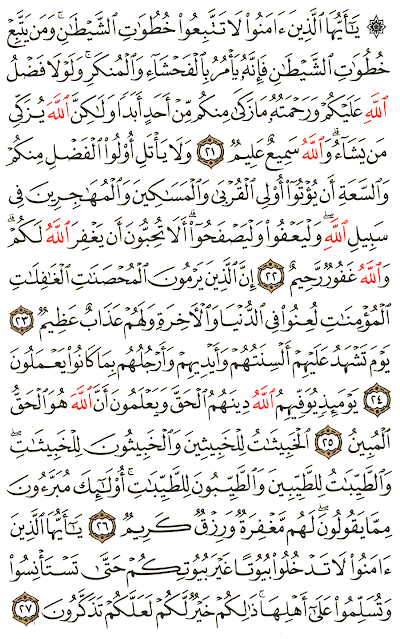 ۞ يَـٰٓأَيُّهَا ٱلَّذِينَ ءَامَنُوا۟ لَا تَتَّبِعُوا۟ خُطُوَٰتِ ٱلشَّيْطَـٰنِ ۚ وَمَن يَتَّبِعْ
خُطُوَٰتِ ٱلشَّيْطَـٰنِ فَإِنَّهُۥ يَأْمُرُ بِٱلْفَحْشَآءِ وَٱلْمُنكَرِ ۚ وَلَوْلَا فَضْلُ
ٱللَّهِ عَلَيْكُمْ وَرَحْمَتُهُۥ مَا زَكَىٰ مِنكُم مِّنْ أَحَدٍ أَبَدًا وَلَـٰكِنَّ ٱللَّهَ يُزَكِّى
مَن يَشَآءُ ۗ وَٱللَّهُ سَمِيعٌ عَلِيمٌ ٢١ وَلَا يَأْتَلِ أُو۟لُوا۟ ٱلْفَضْلِ مِنكُمْ
وَٱلسَّعَةِ أَن يُؤْتُوٓا۟ أُو۟لِى ٱلْقُرْبَىٰ وَٱلْمَسَـٰكِينَ وَٱلْمُهَـٰجِرِينَ فِى
سَبِيلِ ٱللَّهِ ۖ وَلْيَعْفُوا۟ وَلْيَصْفَحُوٓا۟ ۗ أَلَا تُحِبُّونَ أَن يَغْفِرَ ٱللَّهُ لَكُمْ ۗ
وَٱللَّهُ غَفُورٌ رَّحِيمٌ ٢٢ إِنَّ ٱلَّذِينَ يَرْمُونَ ٱلْمُحْصَنَـٰتِ ٱلْغَـٰفِلَـٰتِ
ٱلْمُؤْمِنَـٰتِ لُعِنُوا۟ فِى ٱلدُّنْيَا وَٱلْـَٔاخِرَةِ وَلَهُمْ عَذَابٌ عَظِيمٌ ٢٣
يَوْمَ تَشْهَدُ عَلَيْهِمْ أَلْسِنَتُهُمْ وَأَيْدِيهِمْ وَأَرْجُلُهُم بِمَا كَانُوا۟ يَعْمَلُونَ
٢٤ يَوْمَئِذٍ يُوَفِّيهِمُ ٱللَّهُ دِينَهُمُ ٱلْحَقَّ وَيَعْلَمُونَ أَنَّ ٱللَّهَ هُوَ ٱلْحَقُّ
ٱلْمُبِينُ ٢٥ ٱلْخَبِيثَـٰتُ لِلْخَبِيثِينَ وَٱلْخَبِيثُونَ لِلْخَبِيثَـٰتِ ۖ
وَٱلطَّيِّبَـٰتُ لِلطَّيِّبِينَ وَٱلطَّيِّبُونَ لِلطَّيِّبَـٰتِ ۚ أُو۟لَـٰٓئِكَ مُبَرَّءُونَ
مِمَّا يَقُولُونَ ۖ لَهُم مَّغْفِرَةٌ وَرِزْقٌ كَرِيمٌ ٢٦ يَـٰٓأَيُّهَا ٱلَّذِينَ
ءَامَنُوا۟ لَا تَدْخُلُوا۟ بُيُوتًا غَيْرَ بُيُوتِكُمْ حَتَّىٰ تَسْتَأْنِسُوا۟
وَتُسَلِّمُوا۟ عَلَىٰٓ أَهْلِهَا ۚ ذَٰلِكُمْ خَيْرٌ لَّكُمْ لَعَلَّكُمْ تَذَكَّرُونَ ٢٧